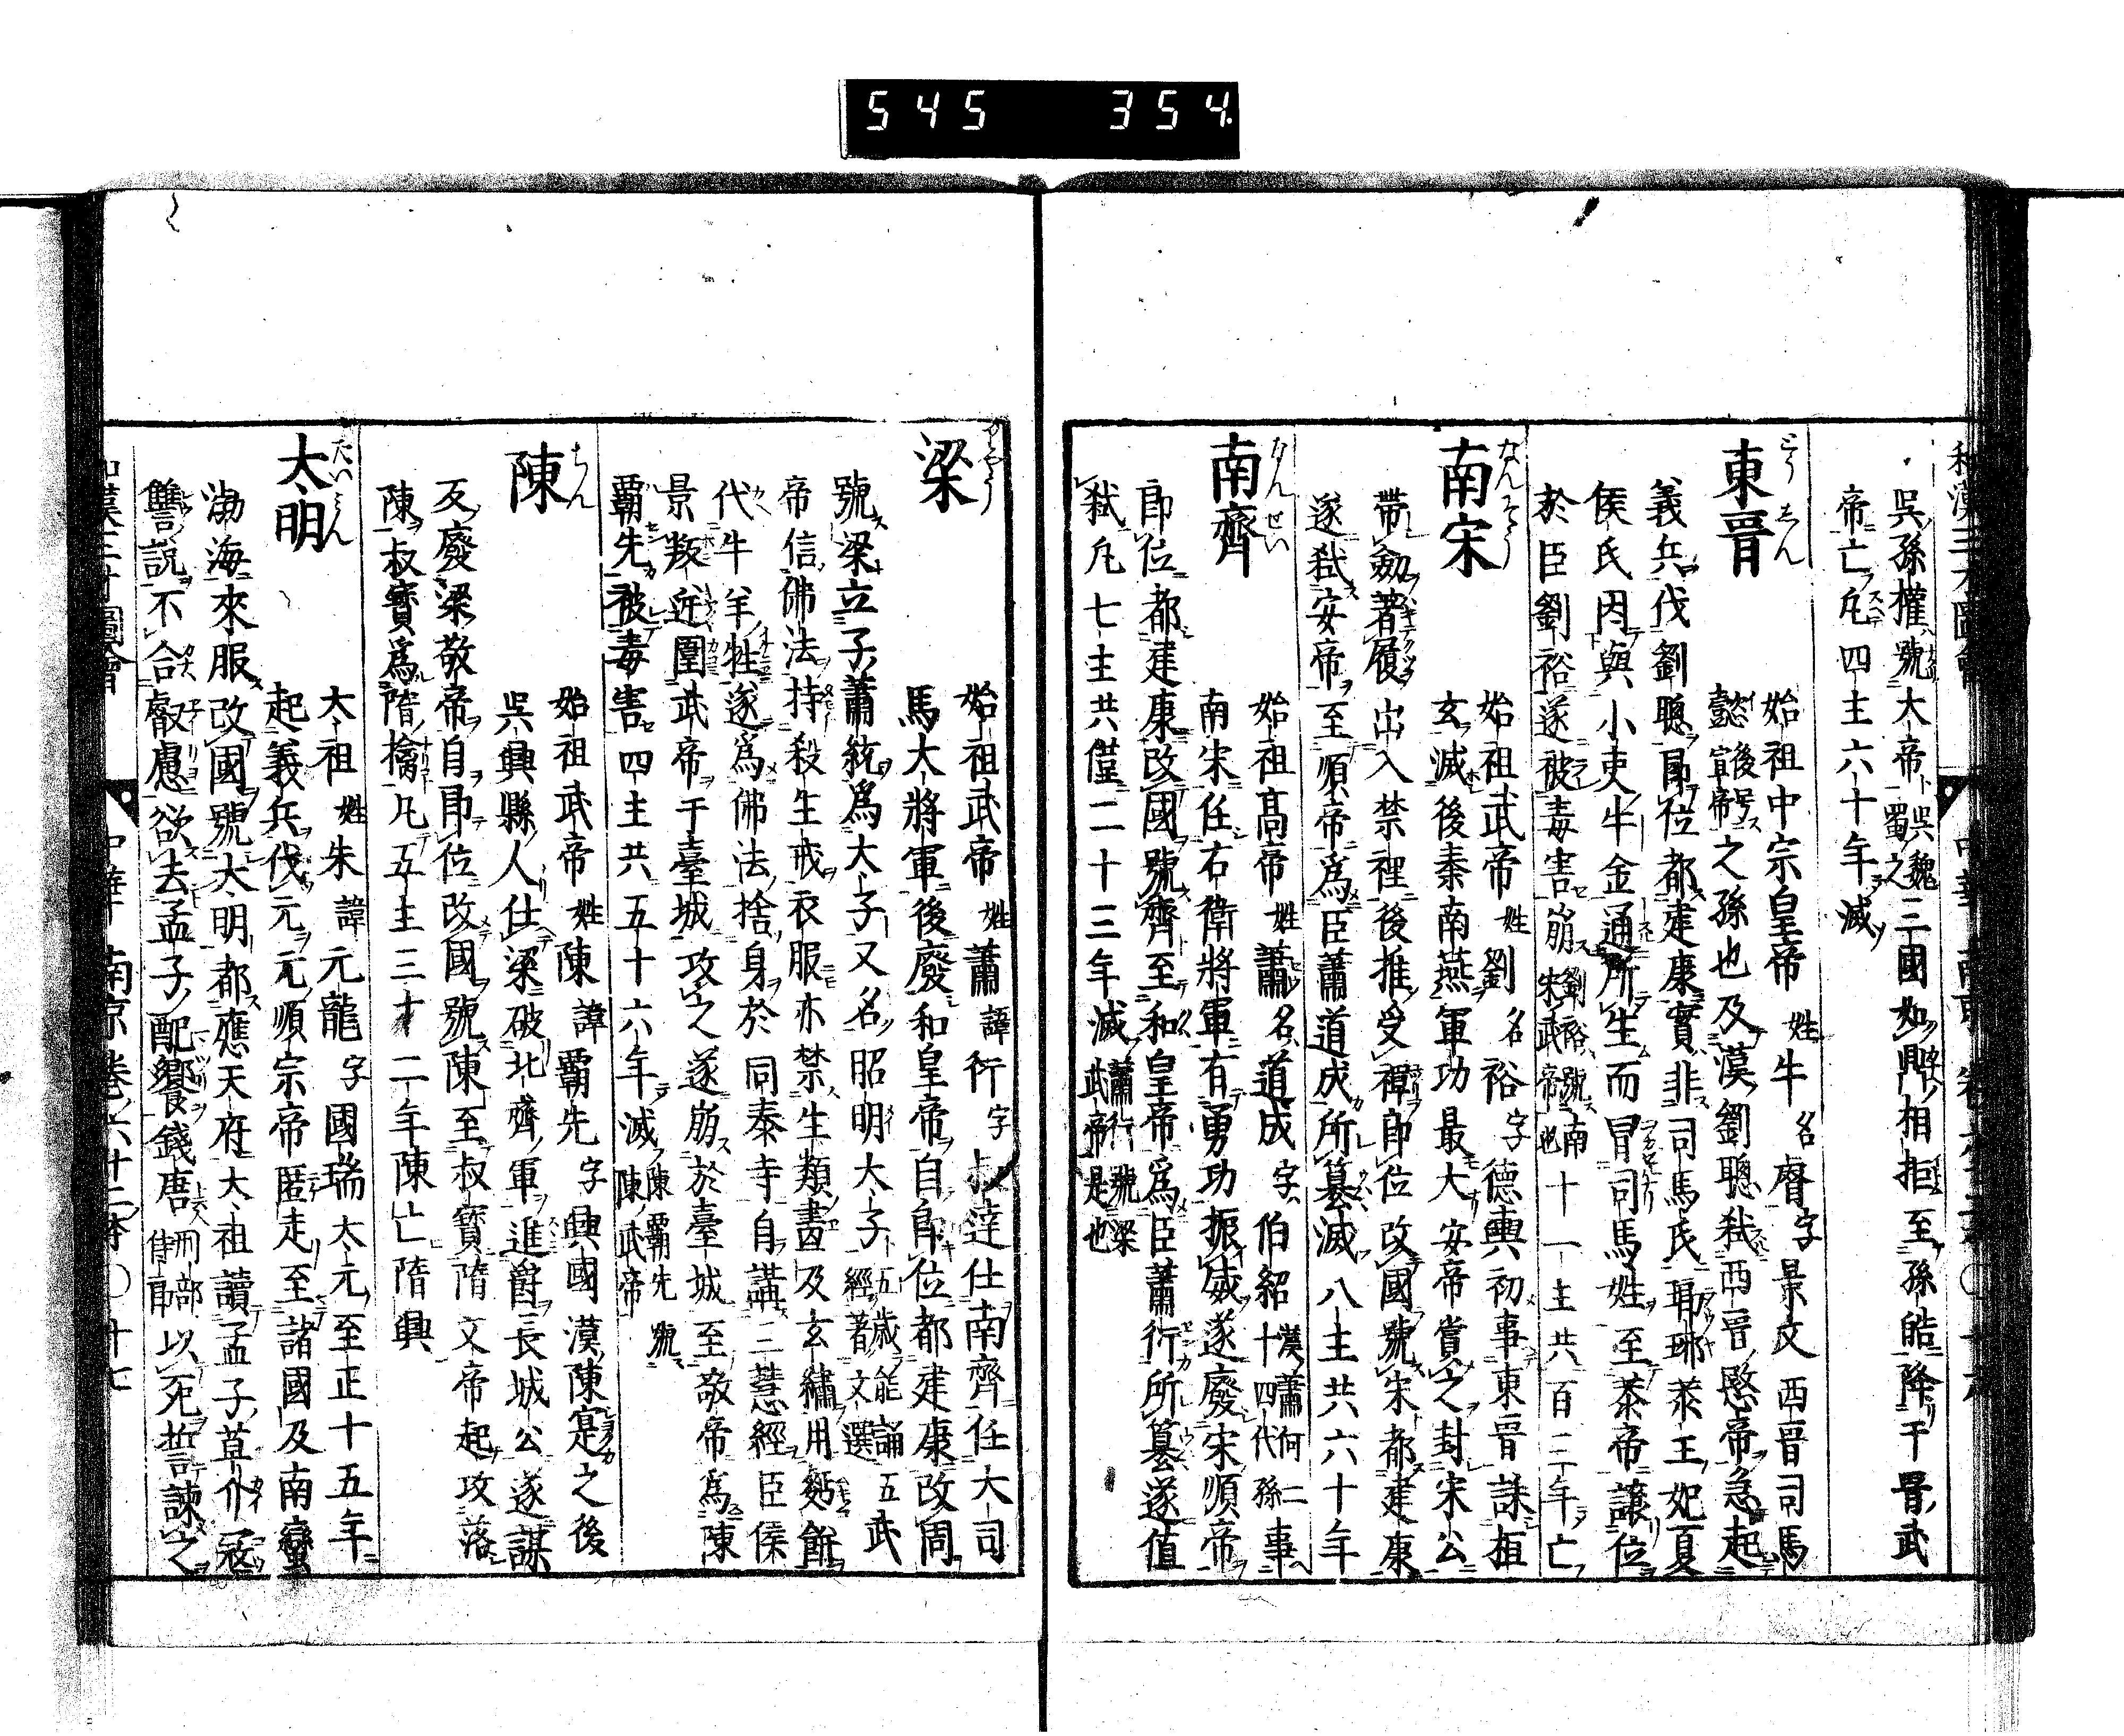 545 354.
和漢三才圖會 中華 南京 卷六十二本 ○ 十六
吳孫權號大帝吳魏蜀之三國如興相拒至孫皓降于晋武
帝亡凡四主六十年滅
東晋 始祖中宗皇帝姓牛名睿字景文西晋司馬
懿後号宣帝之孫也及漢劉聰弑西晋愍帝急起
義兵伐劉聰即位都建康實非司馬氏瑯琊恭王妃夏
侯氏因與小吏牛金通所生而冒司馬姓至恭帝讓位
於臣劉裕遂被毒害崩劉裕號南宋武帝也十一主共百二年亡
南宋 始祖武帝姓劉名裕字德輿初事東晋誅桓
玄滅後秦南燕軍功最大安帝賞之封宋公
帶劒著履出入禁裡後推受禪即位改國號宋都建康
遂弑安帝至順帝爲臣蕭道成所篡滅八主共六十年
南齊 始祖高帝姓蕭名道成字伯紹漢蕭何二十四代孫事
南宋任右衛將軍有勇功振威遂廢宋順帝
即位都建康改國號齊至和皇帝爲臣蕭衍所篡遂值
弑凡七主共僅二十三年滅蕭衍號梁武帝是也
梁 始祖武帝姓蕭諱衍字叔達仕南齊任大司
馬大將軍後廢和皇帝自即位都建康改周
號梁立子蕭統爲大子又名昭明大子五歲能誦五經著文選武
帝信佛法持殺生戒衣服亦禁生類畵及玄繡用麪餅
代牛羊牲遂爲佛法捨身於同泰寺自講三慧經臣侯
景叛近圍武帝于臺城攻之遂崩於臺城至敬帝爲陳
霸先被毒害四主共五十六年滅陳霸先號陳武帝
陳 始祖武帝姓陳諱霸先字興國漢陳寔之後
吳興縣人仕梁破北齊軍進爵長城公遂謀
反廢梁敬帝自即位改國號陳至叔寶隋文帝起攻落
陳叔寶爲隋擒凡五主三十二年陳亡隋興
大明 大祖姓朱諱元龍字國瑞大元至正十五年
起義兵伐元元順宗帝匿走至諸國及南蠻
渤海來服改國號大明都應天府大祖讀孟子草介冦
讐說不合叡慮欲去孟子配饗錢唐刑部侍郎以死哲諫之
和漢三才圖會 中華 南京 卷六十二本 ○ 十七